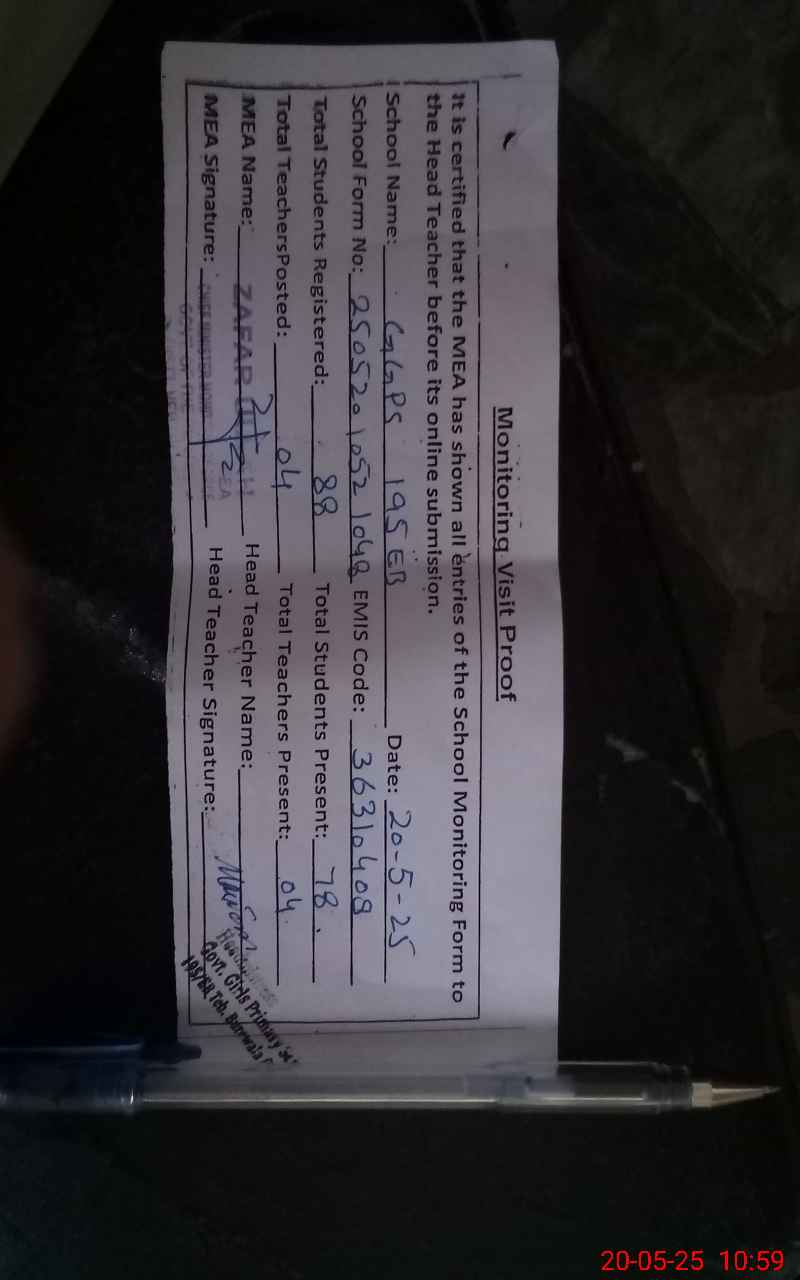 Monitoring Visit Proof
It is certified that the MEA has shown all entries of the School Monitoring Form to
the Head Teacher before its online submission.
School Name: GGPS 195 EB Date: 20-5-25
School Form No: EMIS Code: 36310408
Total Students Registered: 88 Total Students Present: 78
Total TeachersPosted: 04 Total Teachers Present: 04
MEA Name: ZAFAR Head Teacher Name:
MEA Signature: Head Teacher Signature:
Govt. Girls Primary
195/EB Teh. Burewala
20-05-25 10:59